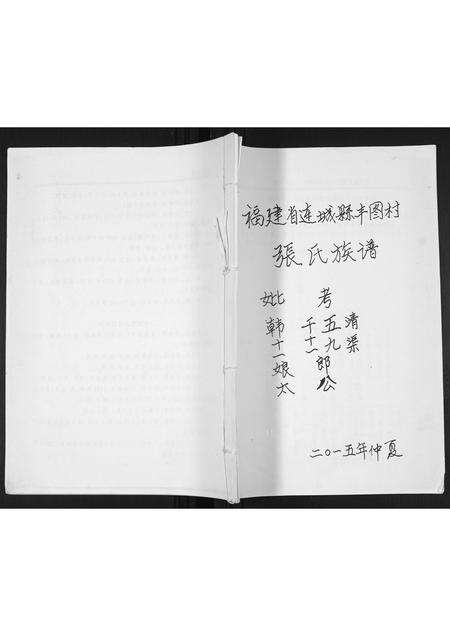 福建省连城縣丰图村
張氏族谱
妣 考
韩 千 五 清
十 十 九 渠
一 二 郎
娘 公
太
二〇一五年仲夏